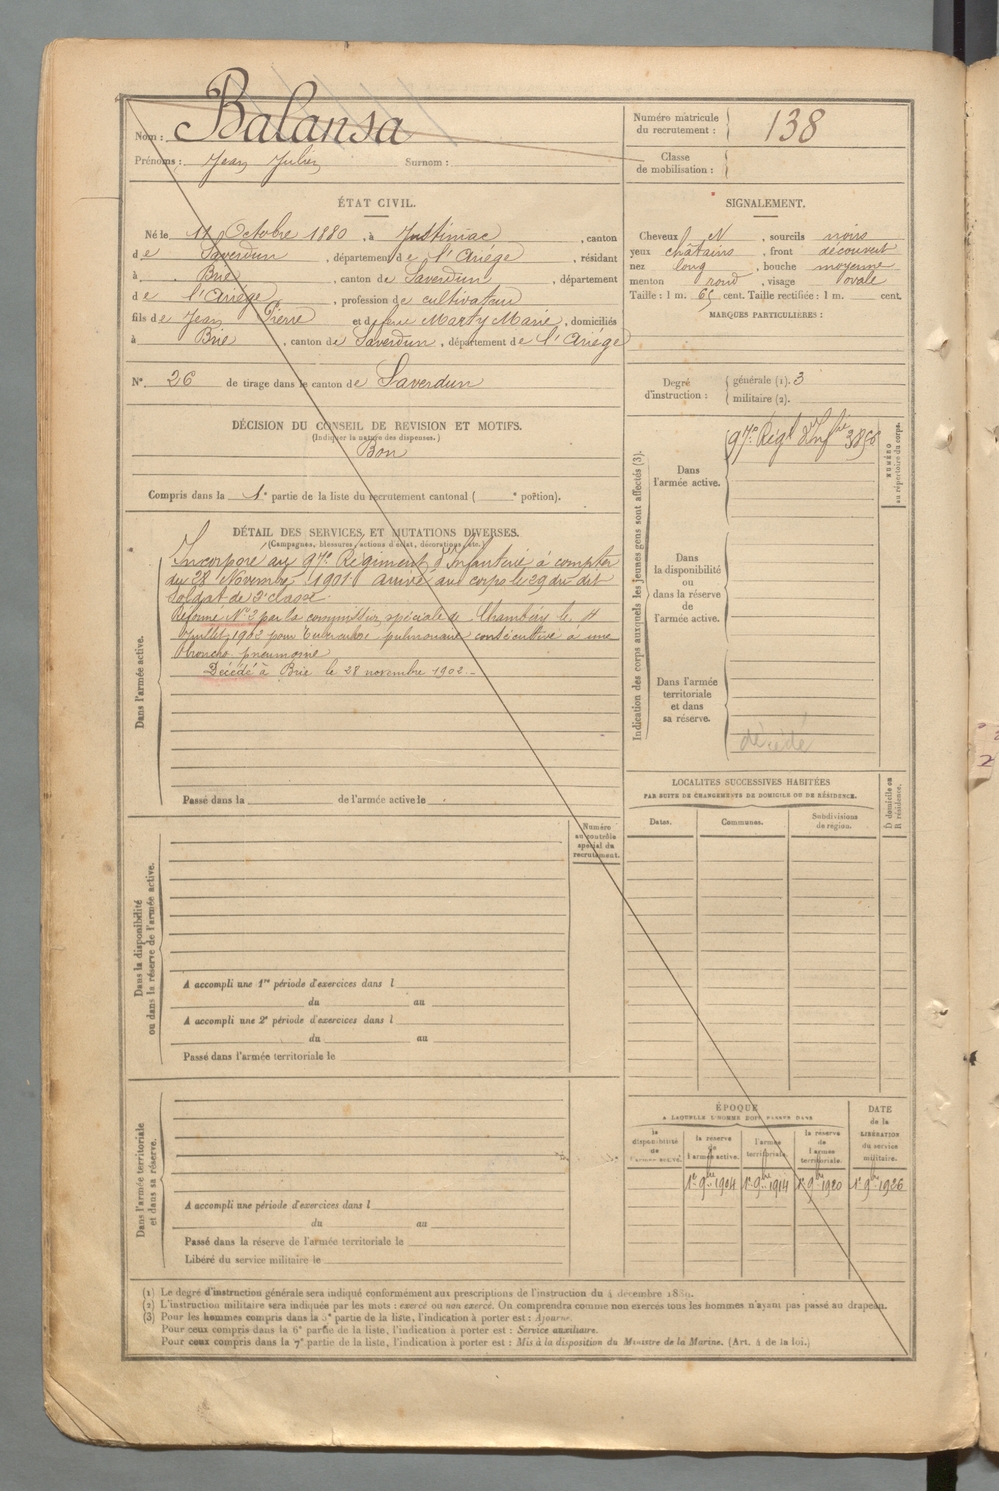 Nom : Balansa
Prénoms : Jean Julien Surnom :
Numéro matricule du recrutement : 138
Classe de mobilisation :
ÉTAT CIVIL.
Né le 11 Octobre 1880, à Justiniac, canton
de Saverdun, département de l'Ariège, résidant
à Brie, canton de Saverdun, département
de l'Ariège, profession de cultivateur
fils de Jean Pierre et de Marty Marie, domiciliés
à Brie, canton de Saverdun, département de l'Ariège
N° 26 de tirage dans le canton de Saverdun
SIGNALEMENT.
Cheveux N, sourcils noirs
yeux châtains, front découvert
nez long, bouche moyenne
menton rond, visage ovale
Taille : 1 m. 65 cent. Taille rectifiée : 1 m. cent.
MARQUES PARTICULIÈRES :
Degré d'instruction : générale (1). 3
militaire (2).
DÉCISION DU CONSEIL DE REVISION ET MOTIFS.
(Indiquer la nature des dispenses.)
Bon
Compris dans la 1e partie de la liste du recrutement cantonal ( e portion).
DÉTAIL DES SERVICES ET MUTATIONS DIVERSES.
(Campagnes, blessures, actions d'éclat, décorations, etc.)
Dans l'armée active.
Incorporé au 97e Régiment d'Infanterie à compter
du 28 Novembre 1901 arrivé au corps le 29 du dit
Soldat de 2e classe.
Réformé N°2 par la commission spéciale de Chambéry le 11
Juillet 1902 pour tuberculose pulmonaire consécutive à une
broncho pneumonie
Décédé à Brie le 28 novembre 1902.-
Passé dans la de l'armée active le
Indication des corps auxquels les jeunes gens sont affectés (3).
NUMÉRO au répertoire du corps.
Dans l'armée active.
97e Régt d'Infrie 3856
Dans la disponibilité ou dans la réserve de l'armée active.
Dans l'armée territoriale et dans sa réserve.
décédé
LOCALITÉS SUCCESSIVES HABITÉES
PAR SUITE DE CHANGEMENTS DE DOMICILE OU DE RÉSIDENCE.
Dates. Communes. Subdivisions de région. D domicile ou R résidence.
Numéro au contrôle spécial du recrutement.
Dans la disponibilité ou dans la réserve de l'armée active.
A accompli une 1re période d'exercices dans l
du au
A accompli une 2e période d'exercices dans l
du au
Passé dans l'armée territoriale le
Dans l'armée territoriale et dans sa réserve.
A accompli une période d'exercices dans l
du au
Passé dans la réserve de l'armée territoriale le
Libéré du service militaire le
ÉPOQUE
A LAQUELLE L'HOMME DOIT PASSER DANS
la disponibilité de l'armée active. la réserve de l'armée active. l'armée territoriale. la réserve de l'armée territoriale.
DATE de la LIBÉRATION du service militaire.
1er 9bre 1904 1er 9bre 1914 1er 9bre 1920 1er 9bre 1926
(1) Le degré d'instruction générale sera indiqué conformément aux prescriptions de l'instruction du 4 décembre 1889.
(2) L'instruction militaire sera indiquée par les mots : exercé ou non exercé. On comprendra comme non exercés tous les hommes n'ayant pas passé au drapeau.
(3) Pour les hommes compris dans la 5e partie de la liste, l'indication à porter est : Ajourné.
Pour ceux compris dans la 6e partie de la liste, l'indication à porter est : Service auxiliaire.
Pour ceux compris dans la 7e partie de la liste, l'indication à porter est : Mis à la disposition du Ministre de la Marine. (Art. 4 de la loi.)